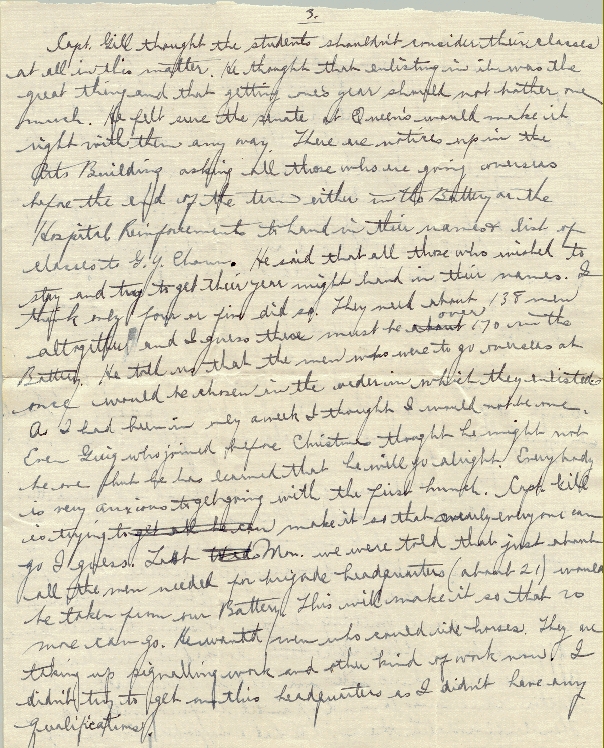 3.
Capt. Gill thought the students shouldn't consider their classes
at all in this matter. He thought that enlisting in it was the
great thing and that getting one's year should not bother one
much. He felt sure the senate at Queen's would make it
right with them any way. There are notices up in the
Arts Building asking all those who are going overseas
before the end of the term either in the Battery or the
Hospital Reinforcements to hand in their names & list of
classes to G. Y. Chown. He said that all those who wished to
stay and try to get their year might hand in their names. I
think only four or five did so. They need about 138 men
altogether and I guess there must be about over 170 in the
Battery. He told us that the men who were to go overseas at
once would be chosen in the order in which they enlisted.
As I had been in only a week I thought I would not be one.
Even who joined before Christmas thought he might not
be one but he has learned that he will go alright. Everybody
is very anxious to get going with the first bunch. Capt. Gill
is trying to get all he can make it so that everyone can
go I guess. Last Wed Mon. we were told that just about
all the men needed for brigade headquarters (about 21) would
be taken from our Battery. This will make it so that 20
more can go. He wanted men who could ride horses. They are
taking up signalling work and other kind of work now. I
didn't try to get on this headquarters as I didn't have any
qualifications.